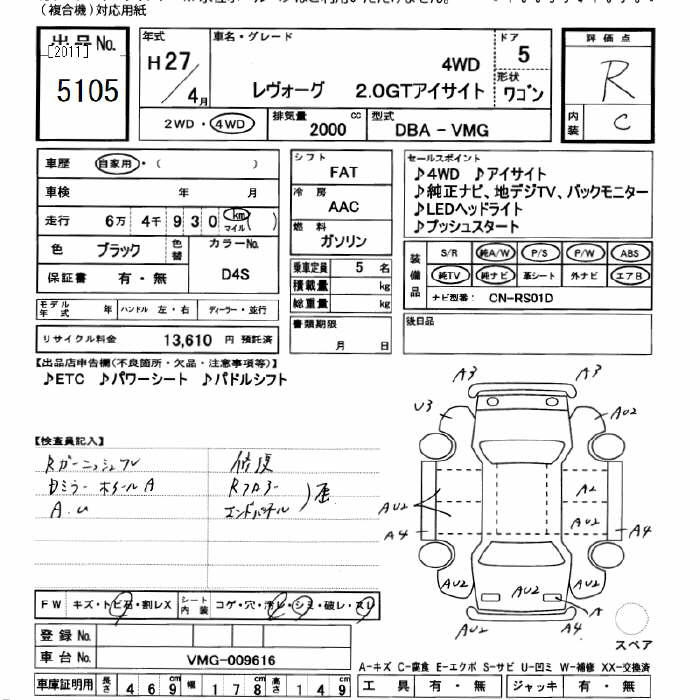 (複合機)対応用紙
出品No.
[2011]
5105
年式
H27/4月
車名・グレード
4WD
レヴォーグ 2.0GTアイサイト
ドア
5
形状
ワゴン
評価点
R
内装
C
2WD・4WD
排気量 2000 cc
型式 DBA-VMG
車歴 自家用・( )
車検 年 月
走行 6万 4千 930 km マイル( )
色 ブラック 色替
カラーNo. D4S
保証書 有・無
モデル年式 年 ハンドル 左・右 ディーラー・並行
リサイクル料金 13,610 円 預託済
シフト
FAT
冷房
AAC
燃料
ガソリン
乗車定員 5 名
積載量 kg
総重量 kg
書類期限
月 日
セールスポイント
♪4WD ♪アイサイト
♪純正ナビ、地デジTV、バックモニター
♪LEDヘッドライト
♪プッシュスタート
装備品
S/R 純A/W P/S P/W ABS
純TV 純ナビ 革シート 外ナビ エアB
ナビ型番: CN-RS01D
後日品
【出品店申告欄(不良箇所・欠品・注意事項等)】
♪ETC ♪パワーシート ♪パドルシフト
【検査員記入】
Rガーニッシュフレ
Dミラー ホイールA
A.U
修復
Rフロアー
エンドパネル
歪
A3 A3
U3 AU2
A2
AU2 AU2
A4 A4
AU2 AU2 AU2
A
AU2 A4
スペア
FW キズ・トビ石・割レX シート内装 コゲ・穴・汚レ・シミ・破レ・スレ
登録No.
車台No. VMG-009616
車庫証明用 長さ 469 cm 幅 178 cm 高さ 149 cm
A-キズ C-腐食 E-エクボ S-サビ U-凹ミ W-補修 XX-交換済
工具 有・無 ジャッキ 有・無